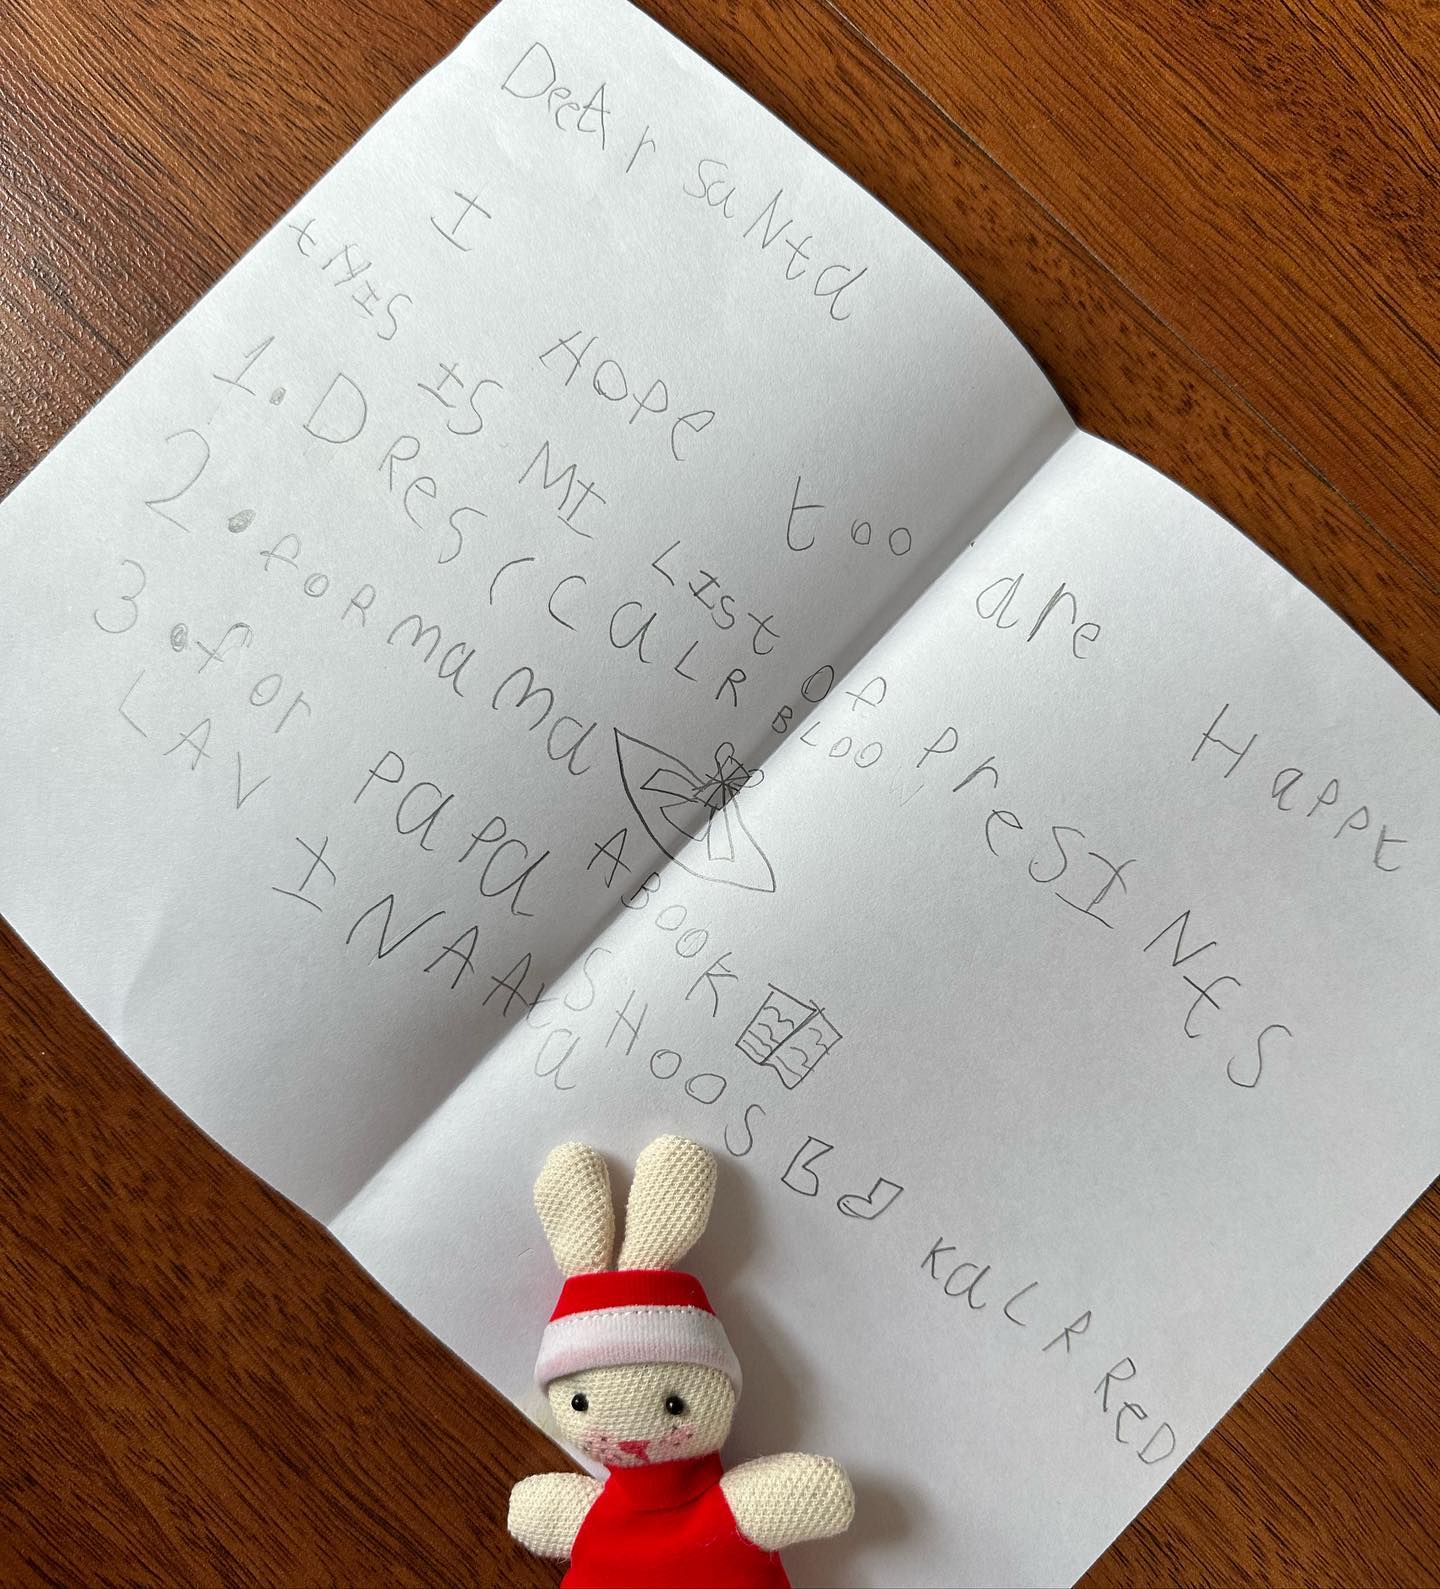 DeeAr saNta
I HOPe too are HaPPt
tHIS IS MI LISt Of PreSINtS
1. DReS (CaLR BLOOW
2. foR mama
3. for PaPa A BOOK
SHOOS KaLR ReD
LAV INAAta